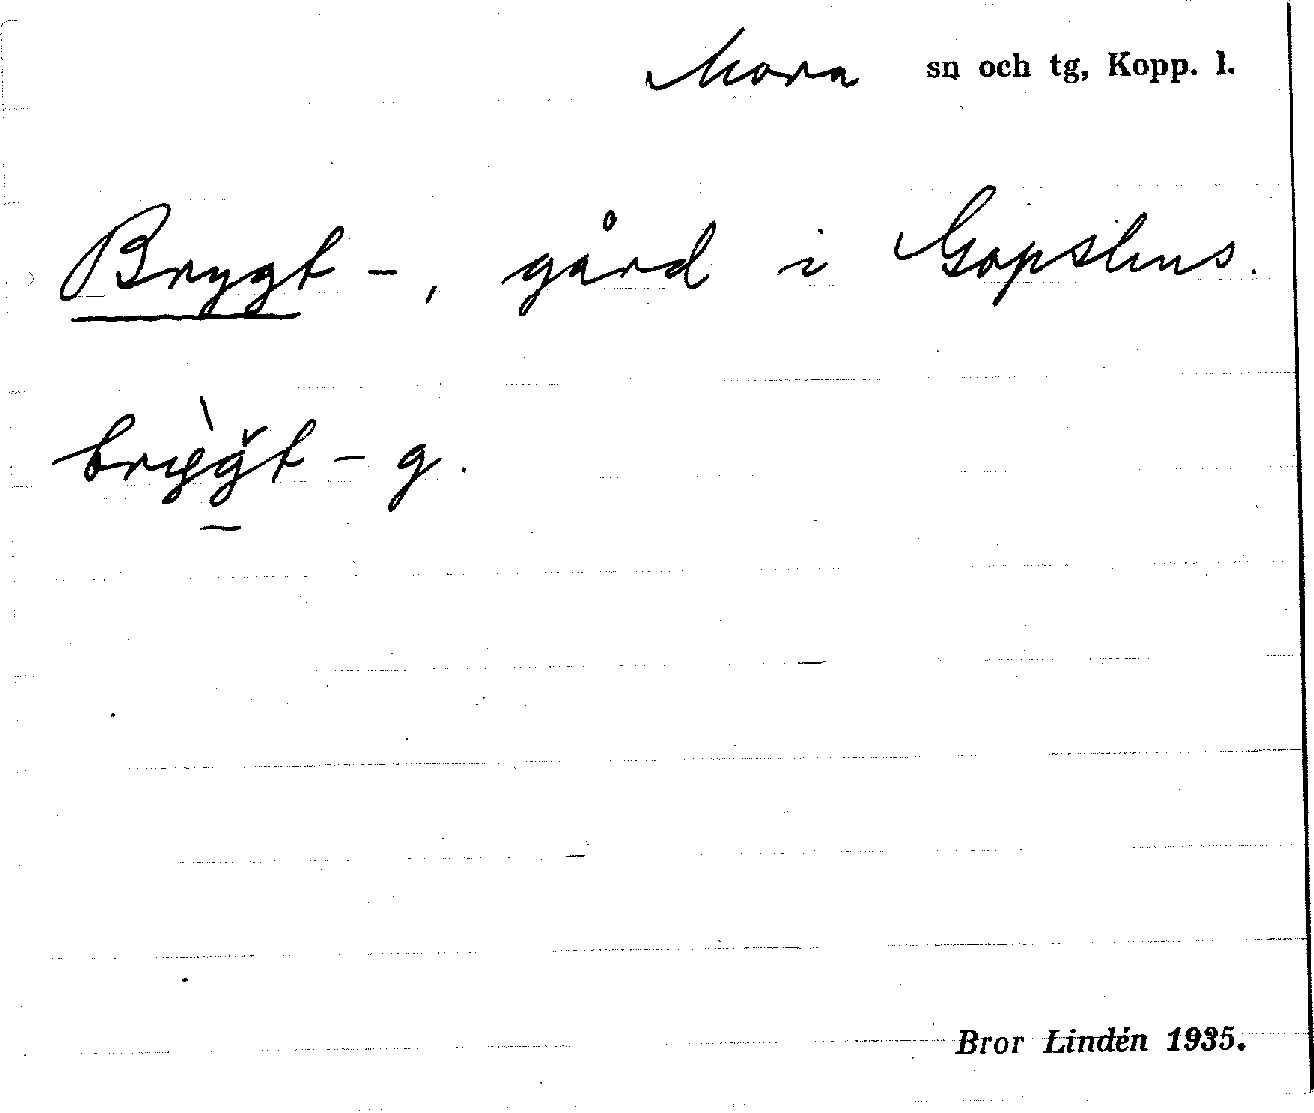 Mora sn och tg, Kopp. l.
Brygt-, gård i Gopshus.
brỳǧt - g.
Bror Lindén 1935.